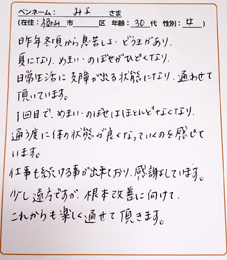 ペンネーム： みよ さま
（在住：福山 市 区 年齢：30 代 性別：女 ）
昨年冬頃から息苦しさ・どうきがあり、
夏になり、めまい・のぼせがひどくなり、
日常生活に支障が出る状態になり、通わせて
頂いています。
1回目で、めまい・のぼせはほとんどなくなり、
通う度に体の状態が良くなっていくのを感じて
います。
仕事も続ける事が出来ており、感謝しています。
少し遠方ですが、根本改善に向けて、
これからも楽しく通せて頂きます。